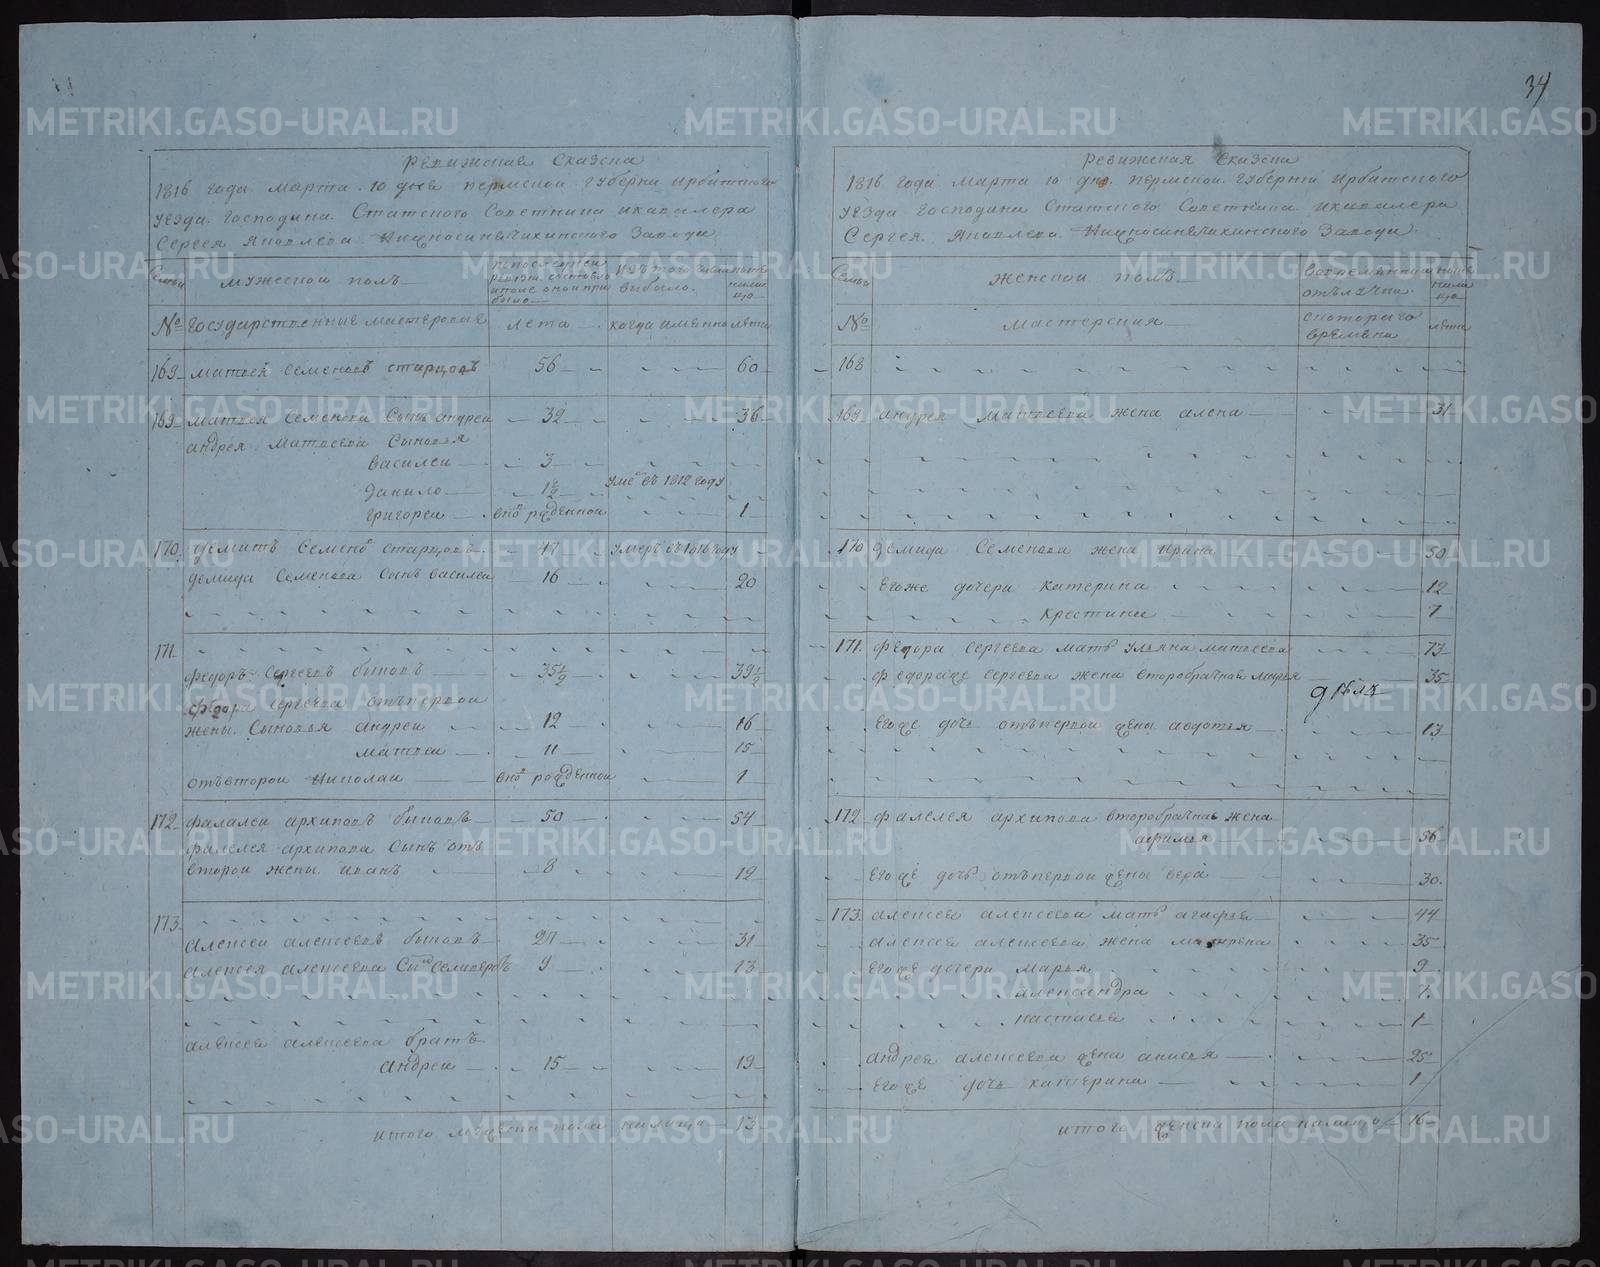 34
Ревижская Сказска
1816 года марта 10 дня Пермской губерни Ирбитского
уезда господина Статского Советника икавалера
Сергея Яковлева Нижносинячихинского завода
Семьи
мужеской полъ
выбыло.
№
государственные мастеровые
лета
когда именно
лета
169 матвей семеновъ старцовъ 56 60
169 матвея семенова сынъ андреи 32 36
андрея матвеева сыновья
василеи 3
данило 1½ умре въ 1812 году
григореи вно рожденной 1
170. демитъ семено старцовъ 47 умеръ въ 1816 году
демида семенова сынъ василеи 16 20
171.
федоръ сергеевъ быковъ 35½ 39½
федора сергеева отъпервои
жены сыновья андреи 12 16
матвеи 11 15
отъвторои Николаи вно рожденнои 1
172 фалалеи архиповъ быковъ 50 54
фалелея архипова сынъ отъ
второи жены иванъ 8 12
173
алексеи алексеевъ быковъ 27 31
алексея алексеева сынъ селиверстъ 9 13
алексея алексеева братъ
андреи 15 19
итого мужеска пола налицо 13
Ревижская Сказска
1816 года марта 10 дня. Пермской губерни Ирбитского
уезда господина Статского Советника икавалера
Сергея Яковлева Нижносинячихинского завода
Семьи
женской полъ
вовременной
отълучке
№
мастерския
скотораго
времвни
лета
168
169 андрея матвеева жена алена 31
170 демида семенова жена ирина 50
егоже дочери катерина 12
крестина 7
171. федора сергеева мать ульяна матвеева 73
федораже сергеева жена второбрачная марья 35
егоже дочь отъпервои жены авдотья 13
172 фалелея архипова второбрачная жена
афимья 56
егоже дочь отъпервои жены вера 30.
173. алексея алексеева мать агафья 44
алексея алексеева жена матрена 35
егоже дочери марья 9
александра 7
настасья 1
андрея алексеева жена анисья 25
егоже дочь катерина 1
итого женска пола налицо 16
METRIKI.GASO-URAL.RU